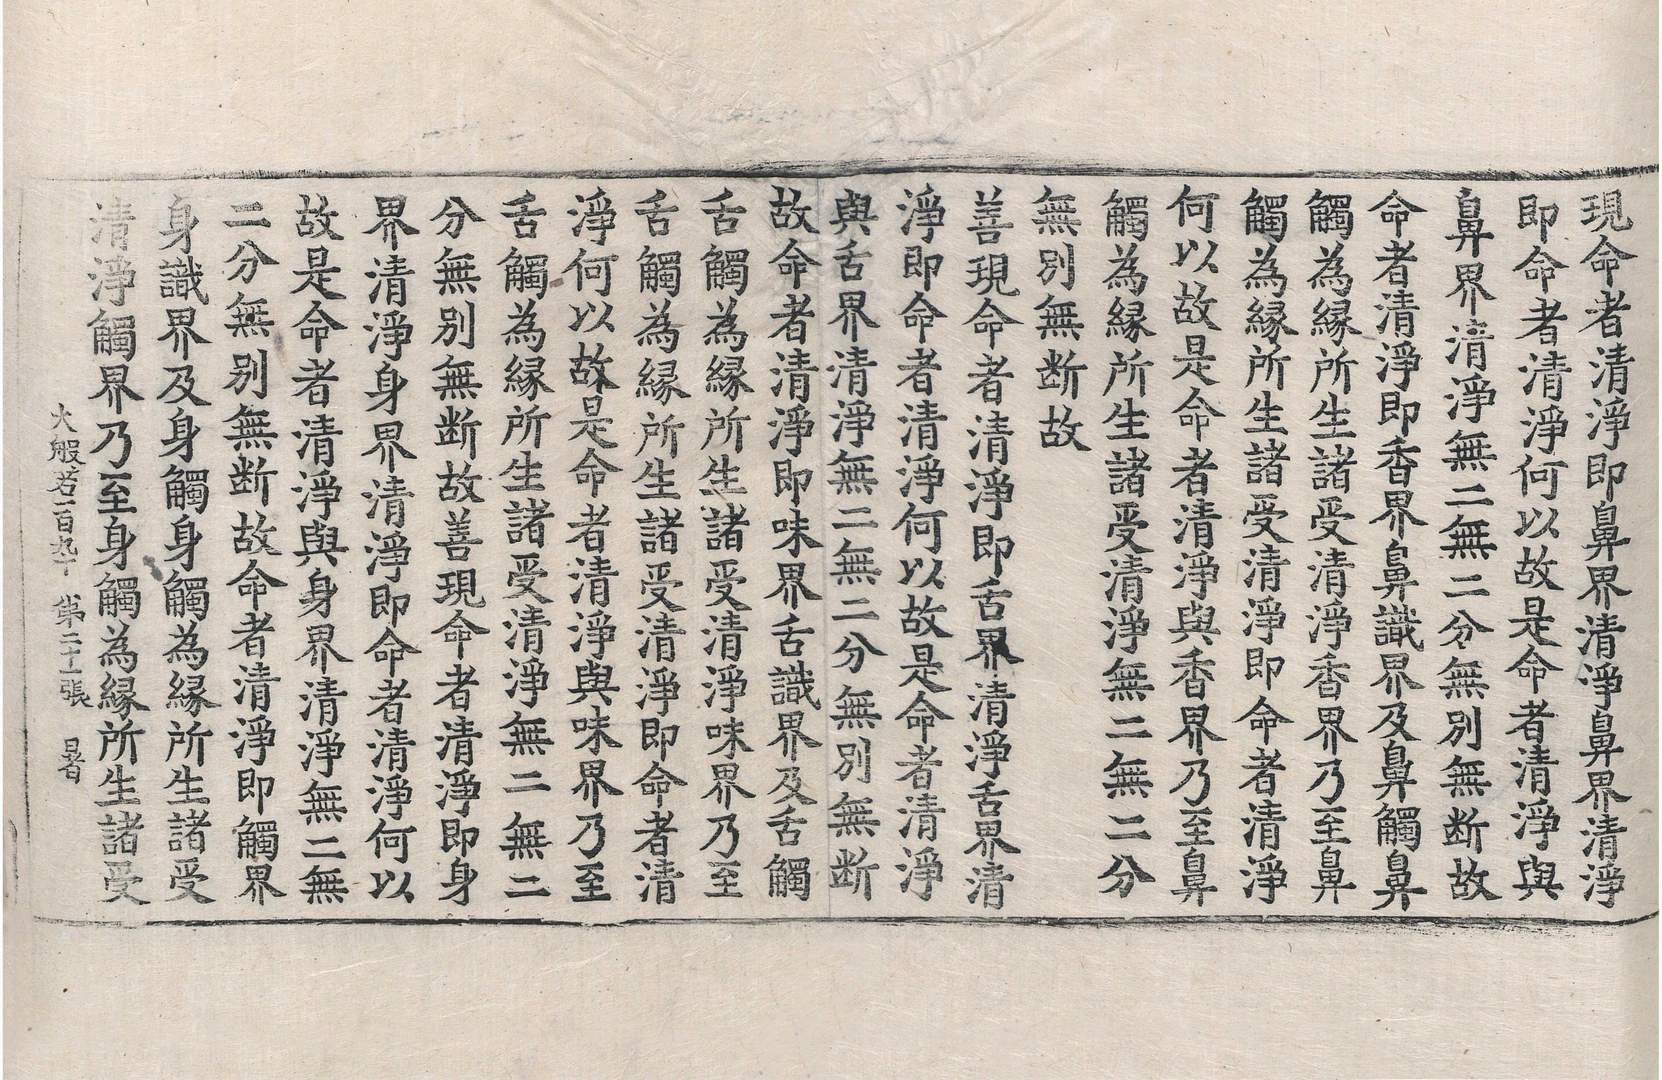 現命者清淨即鼻界清淨鼻界清淨
即命者清淨何以故是命者清淨與
鼻界清淨無二無二分無別無断故
命者清淨即香界鼻識界及鼻觸鼻
觸為縁所生諸受清淨香界乃至鼻
觸為縁所生諸受清淨即命者清淨
何以故是命者清淨與香界乃至鼻
觸為縁所生諸受清淨無二無二分
無別無断故
善現命者清淨即舌界清淨舌界清
淨即命者清淨何以故是命者清淨
與舌界清淨無二無二分無別無断
故命者清淨即味界舌識界及舌觸
舌觸為縁所生諸受清淨味界乃至
舌觸為縁所生諸受清淨即命者清
淨何以故是命者清淨與味界乃至
舌觸為縁所生諸受清淨無二無二
分無别無断故善現命者清淨即身
界清淨身界清淨即命者清淨何以
故是命者清淨與身界清淨無二無
二分無别無断故命者清淨即觸界
身識界及身觸身觸為縁所生諸受
清淨觸界乃至身觸為縁所生諸受
大般若一百九十 第二十一張 暑